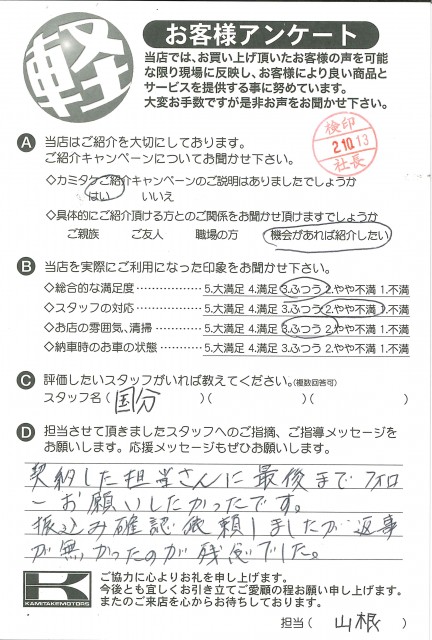 軽
お客様アンケート
当店では、お買い上げ頂いたお客様の声を可能
な限り現場に反映し、お客様により良い商品と
サービスを提供する事に努めています。
大変お手数ですが是非お声をお聞かせ下さい。
検印
2.10.13
社長
A 当店はご紹介を大切にしております。
ご紹介キャンペーンについてお聞かせ下さい。
◇カミタケご紹介キャンペーンのご説明はありましたでしょうか
はい いいえ
◇具体的にご紹介頂ける方とのご関係をお聞かせ頂けますでしょうか
ご親族 ご友人 職場の方 機会があれば紹介したい
B 当店を実際にご利用になった印象をお聞かせ下さい。
◇総合的な満足度 ・・・・・・・・・・・・ 5.大満足 4.満足 3.ふつう 2.やや不満 1.不満
◇スタッフの対応 ・・・・・・・・・・・・ 5.大満足 4.満足 3.ふつう 2.やや不満 1.不満
◇お店の雰囲気、清掃 ・・・・・・・・ 5.大満足 4.満足 3.ふつう 2.やや不満 1.不満
◇納車時のお車の状態 ・・・・・・・・ 5.大満足 4.満足 3.ふつう 2.やや不満 1.不満
C 評価したいスタッフがいれば教えてください。(複数回答可)
スタッフ名 ( 国分 )( )( )
D 担当させて頂きましたスタッフへのご指摘、ご指導メッセージを
お願いします。応援メッセージもぜひお願いします。
契約した担当さんに最後までフォロ
ーお願いしたかったです。
振込み確認依頼しましたが返事
が無かったのが残念でした。
K
KAMITAKE MOTORS
ご協力に心よりお礼を申し上げます。
今後とも宜しくお引き立てご愛顧の程お願い申し上げます。
またのご来店を心からお待ちしております。
担当 ( 山根 )